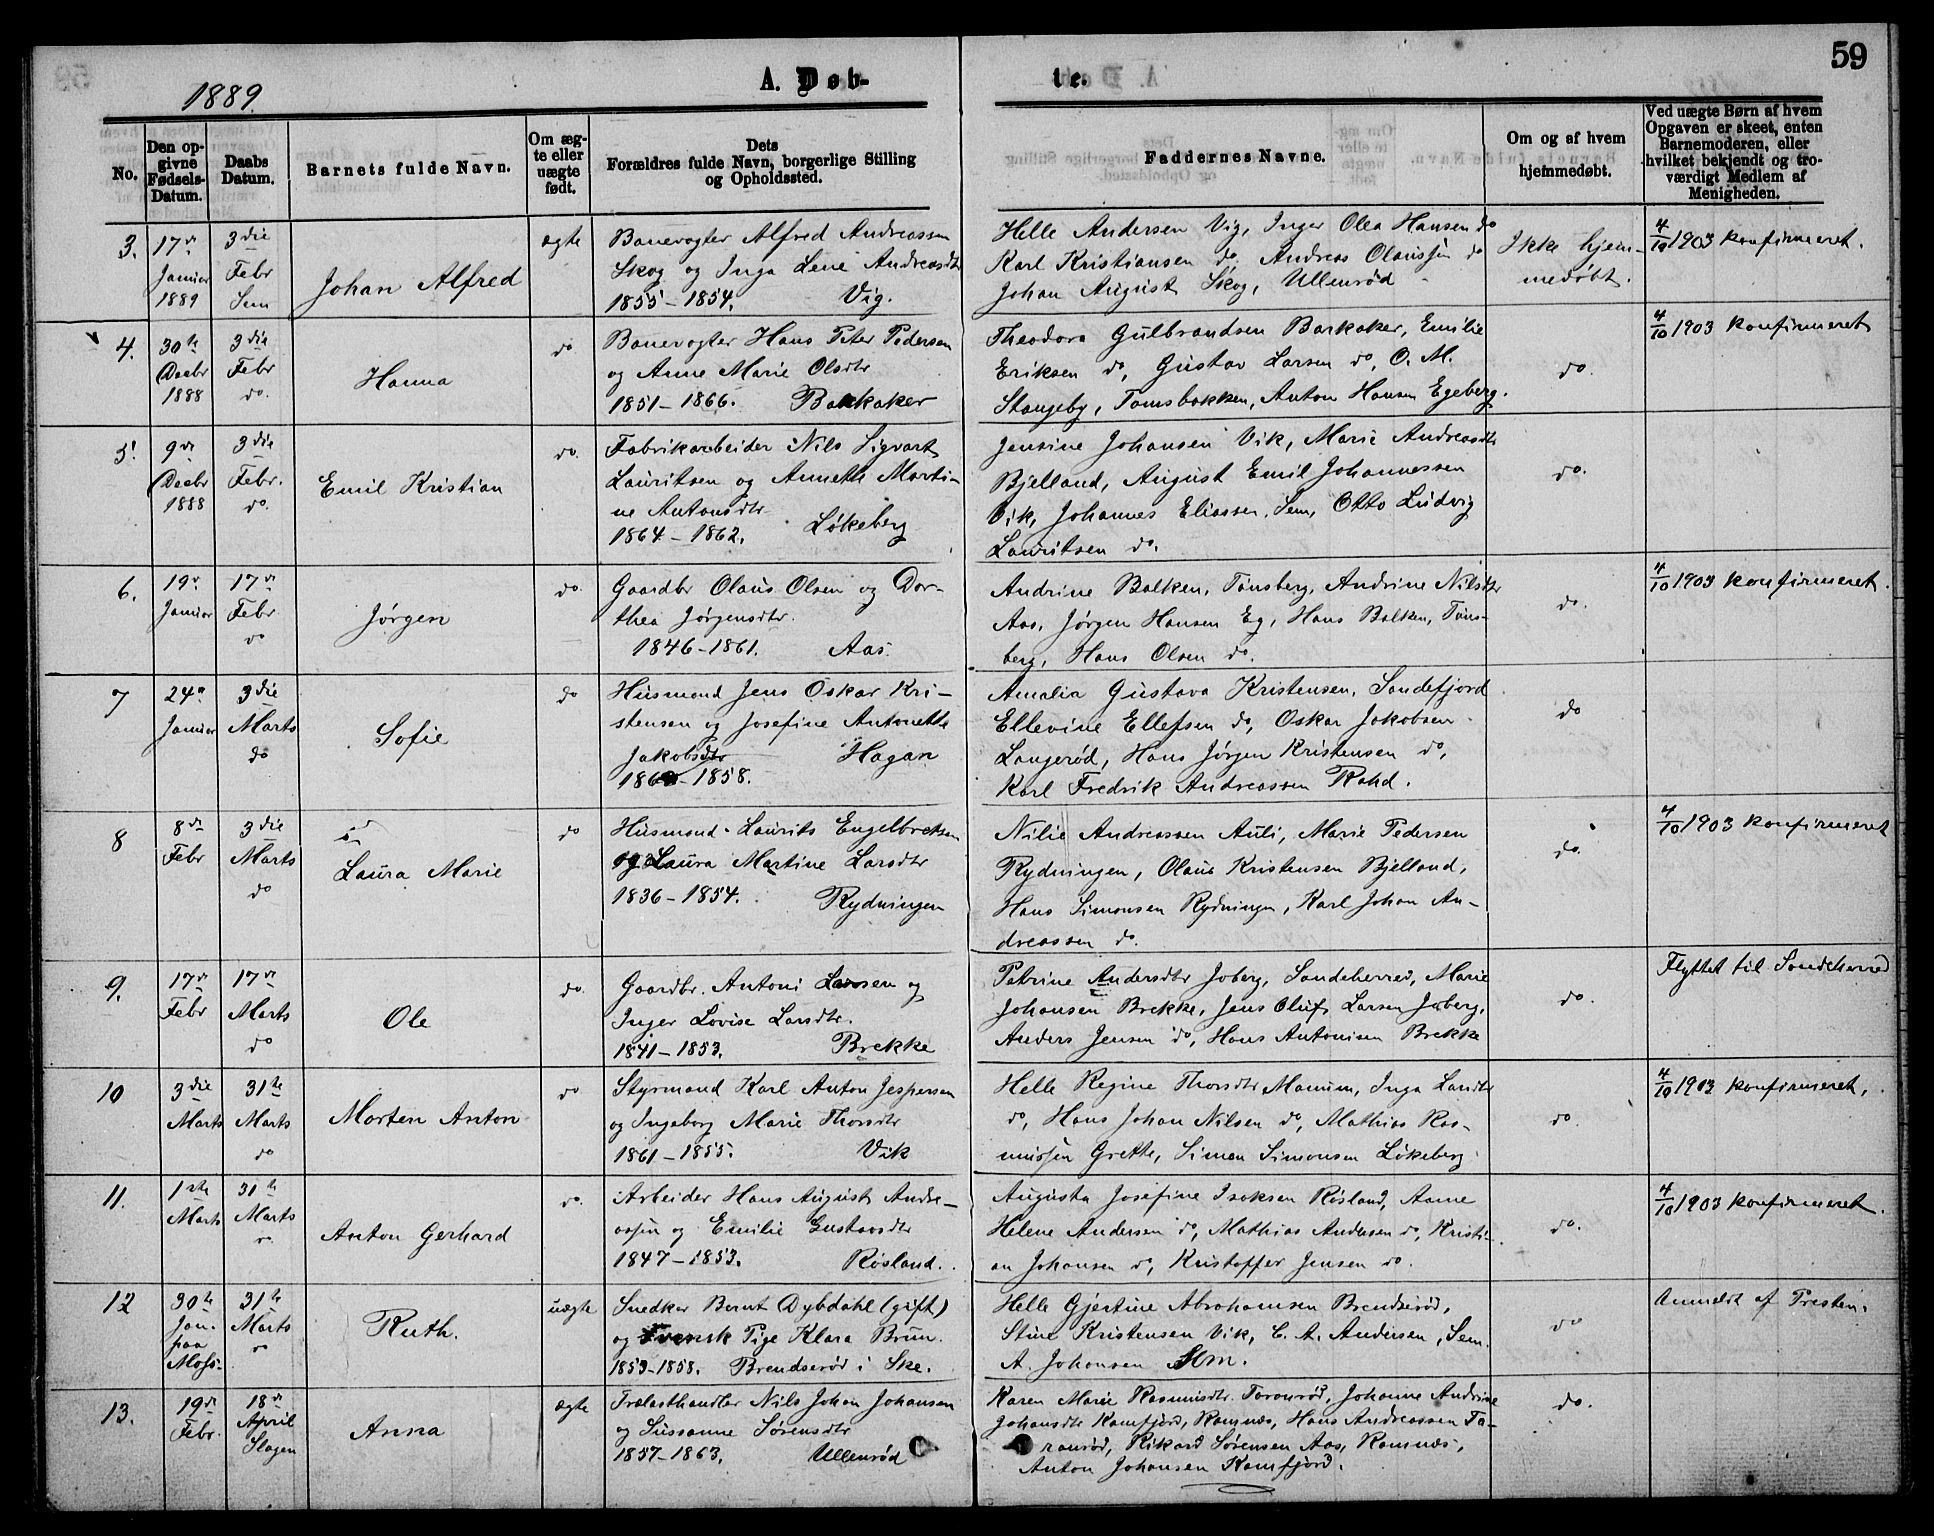 59
1889
A. Døb-
te.
No.
Den op-
givne
Fødsels-
Datum.
Daabs
Datum.
Barnets fulde Navn.
Om æg-
te eller
uægte
født.
Dets
Forældres fulde Navn, borgerlige Stilling
og Opholdssted.
Faddernes Navne.
Om og af hvem
hjemmedøbt.
Ved uægte Børn af hvem
Opgaven er skeet, enten
Barnemoderen, eller
hvilket bekjendt og tro-
værdigt Medlem af
Menigheden.
3.
17de
Januar
1889
3die
Febr
Sem
Johan Alfred
ægte
Banevogter Alfred Andreassen
Skog og Inga Lene Andreasdtr
1855-1854. Vig.
Helle Andersen Vig, Inger Olea Hansen do
Karl Kristiansen do, Andreas Olaussen do
Johan August Skog, Ullenrød
Ikke hjem-
medøbt.
4/10 1903 konfirmeret.
4.
30te
Decbr
1888
3die
Febr
do.
Hanna
do
Banevogter Hans Peter Pedersen
og Anne Marie Olsdtr
1851-1866. Barkaker
Theodora Gulbrandsen Barkaker, Emilie
Eriksen do, Gustav Larsen do, O. M.
Stangeby, Tamsbakken, Anton Hansen Egeberg.
do.
4/10 1903 konfirmeret
5.
9de
Decbr
1888
3die
Febr.
do.
Emil Kristian
do.
Fabrikarbeider Nils Sigvart
Lauritsen og Annette Marti-
ne Antonsdtr
1864-1862. Løkeberg
Jensine Johansen Vik, Marie Andreasdtr
Bjelland, August Emil Johannessen
Vik, Johannes Eliassen, Sem, Otto Ludvig
Lauritsen do.
do.
6.
19de
Januar
17de
Febr
do
Jørgen
do.
Gaardbr Olaus Olsen og Dor-
thea Jørgensdtr.
1846-1861. Aas.
Andrine Balken, Tønsberg, Andrine Nilsdtr
Aas, Jørgen Hansen Eg, Hans Balken, Tøns-
berg, Hans Olsen do.
do.
4/10 1903 konfirmeret.
7
24de
Januar
3die
Marts
do
Sofie
do
Husmand Jens Oskar Kri-
stensen og Josefine Antonette
Jakobsdtr Hagan
1858.
Amalia Gustava Kristensen, Sandefjord
Ellevine Ellefsen do, Oskar Jakobsen
Langerød, Hans Jørgen Kristensen do,
Karl Fredrik Andreassen Rand.
do
8
8de
Febr
3die
Marts
do
Laura Marie
do
Husmand Laurits Engelbretsen
og Laura Martine Larsdtr
1836-1854. Rydningen
Nilie Andreassen Auli, Marie Pedersen
Rydningen, Olaus Kristensen Bjelland,
Hans Simonsen Rydningen, Karl Johan An-
dreassen do.
do.
4/10 1903 konfirmeret
9.
17de
Febr
17de
Marts
do
Ole
do.
Gaardbr. Antoni Larsen og
Inger Lovise Larsdtr.
1841-1853. Brekke
Petrine Andersdtr Joberg, Sandeherred, Marie
Johansen Brekke, Jens Oluf Larsen Joberg,
Anders Jensen do, Hans Antonisen Brekke
do.
Flyttet til Sandeherred
10
3die
Marts
31te
Marts
do
Morten Anton
do
Styrmand Karl Anton Jespersen
og Ingeborg Marie Thorsdtr
1861-1855. Vik
Helle Regine Thorsdtr Manum, Inga Larsdtr
do, Hans Johan Nilsen do, Mathias Ras-
mussen Grette, Simon Simonsen Løkeberg
do.
4/10 1903 konfirmeret,
11.
1ste
Marts
31te
Marts
do
Anton Gerhard
do.
Arbeider Hans August Andre-
assen og Emilie Gustavsdtr
1847-1853. Røsland.
Augusta Josefine Isaksen Røsland, Anne
Helene Andersen do, Mathias Andersen do, Kristi-
an Johansen do, Kristoffer Jensen do.
do.
4/10 1903 konfirmeret.
12
30te
Jan.
paa
Moss.
31te
Marts
do
Ruth.
uægte
Snedker Bernt Dybdahl (gift)
og Pige Klara Brun.
1853-1858. Brendserød i Ske.
Helle Gjertine Abrahamsen Brendserød,
Stine Kristensen Vik, C. A. Andersen, Sem.
A. Johansen Sem.
do
Anmeldt af Presten.
13.
19de
Febr.
18de
April
Slagen
Anna
ægte
Trælasthandler Nils Johan Johansen
og Sussanne Sørensdtr
1857-1863. Ullenrød
Karen Marie Rasmusdtr. Taranrød, Johanne Andrine
Johansdtr Kamfjord, Ramnes, Hans Andreassen Ta-
ranrød, Rikard Sørensen Aas, Ramnes,
Anton Johansen Kamfjord.
do.